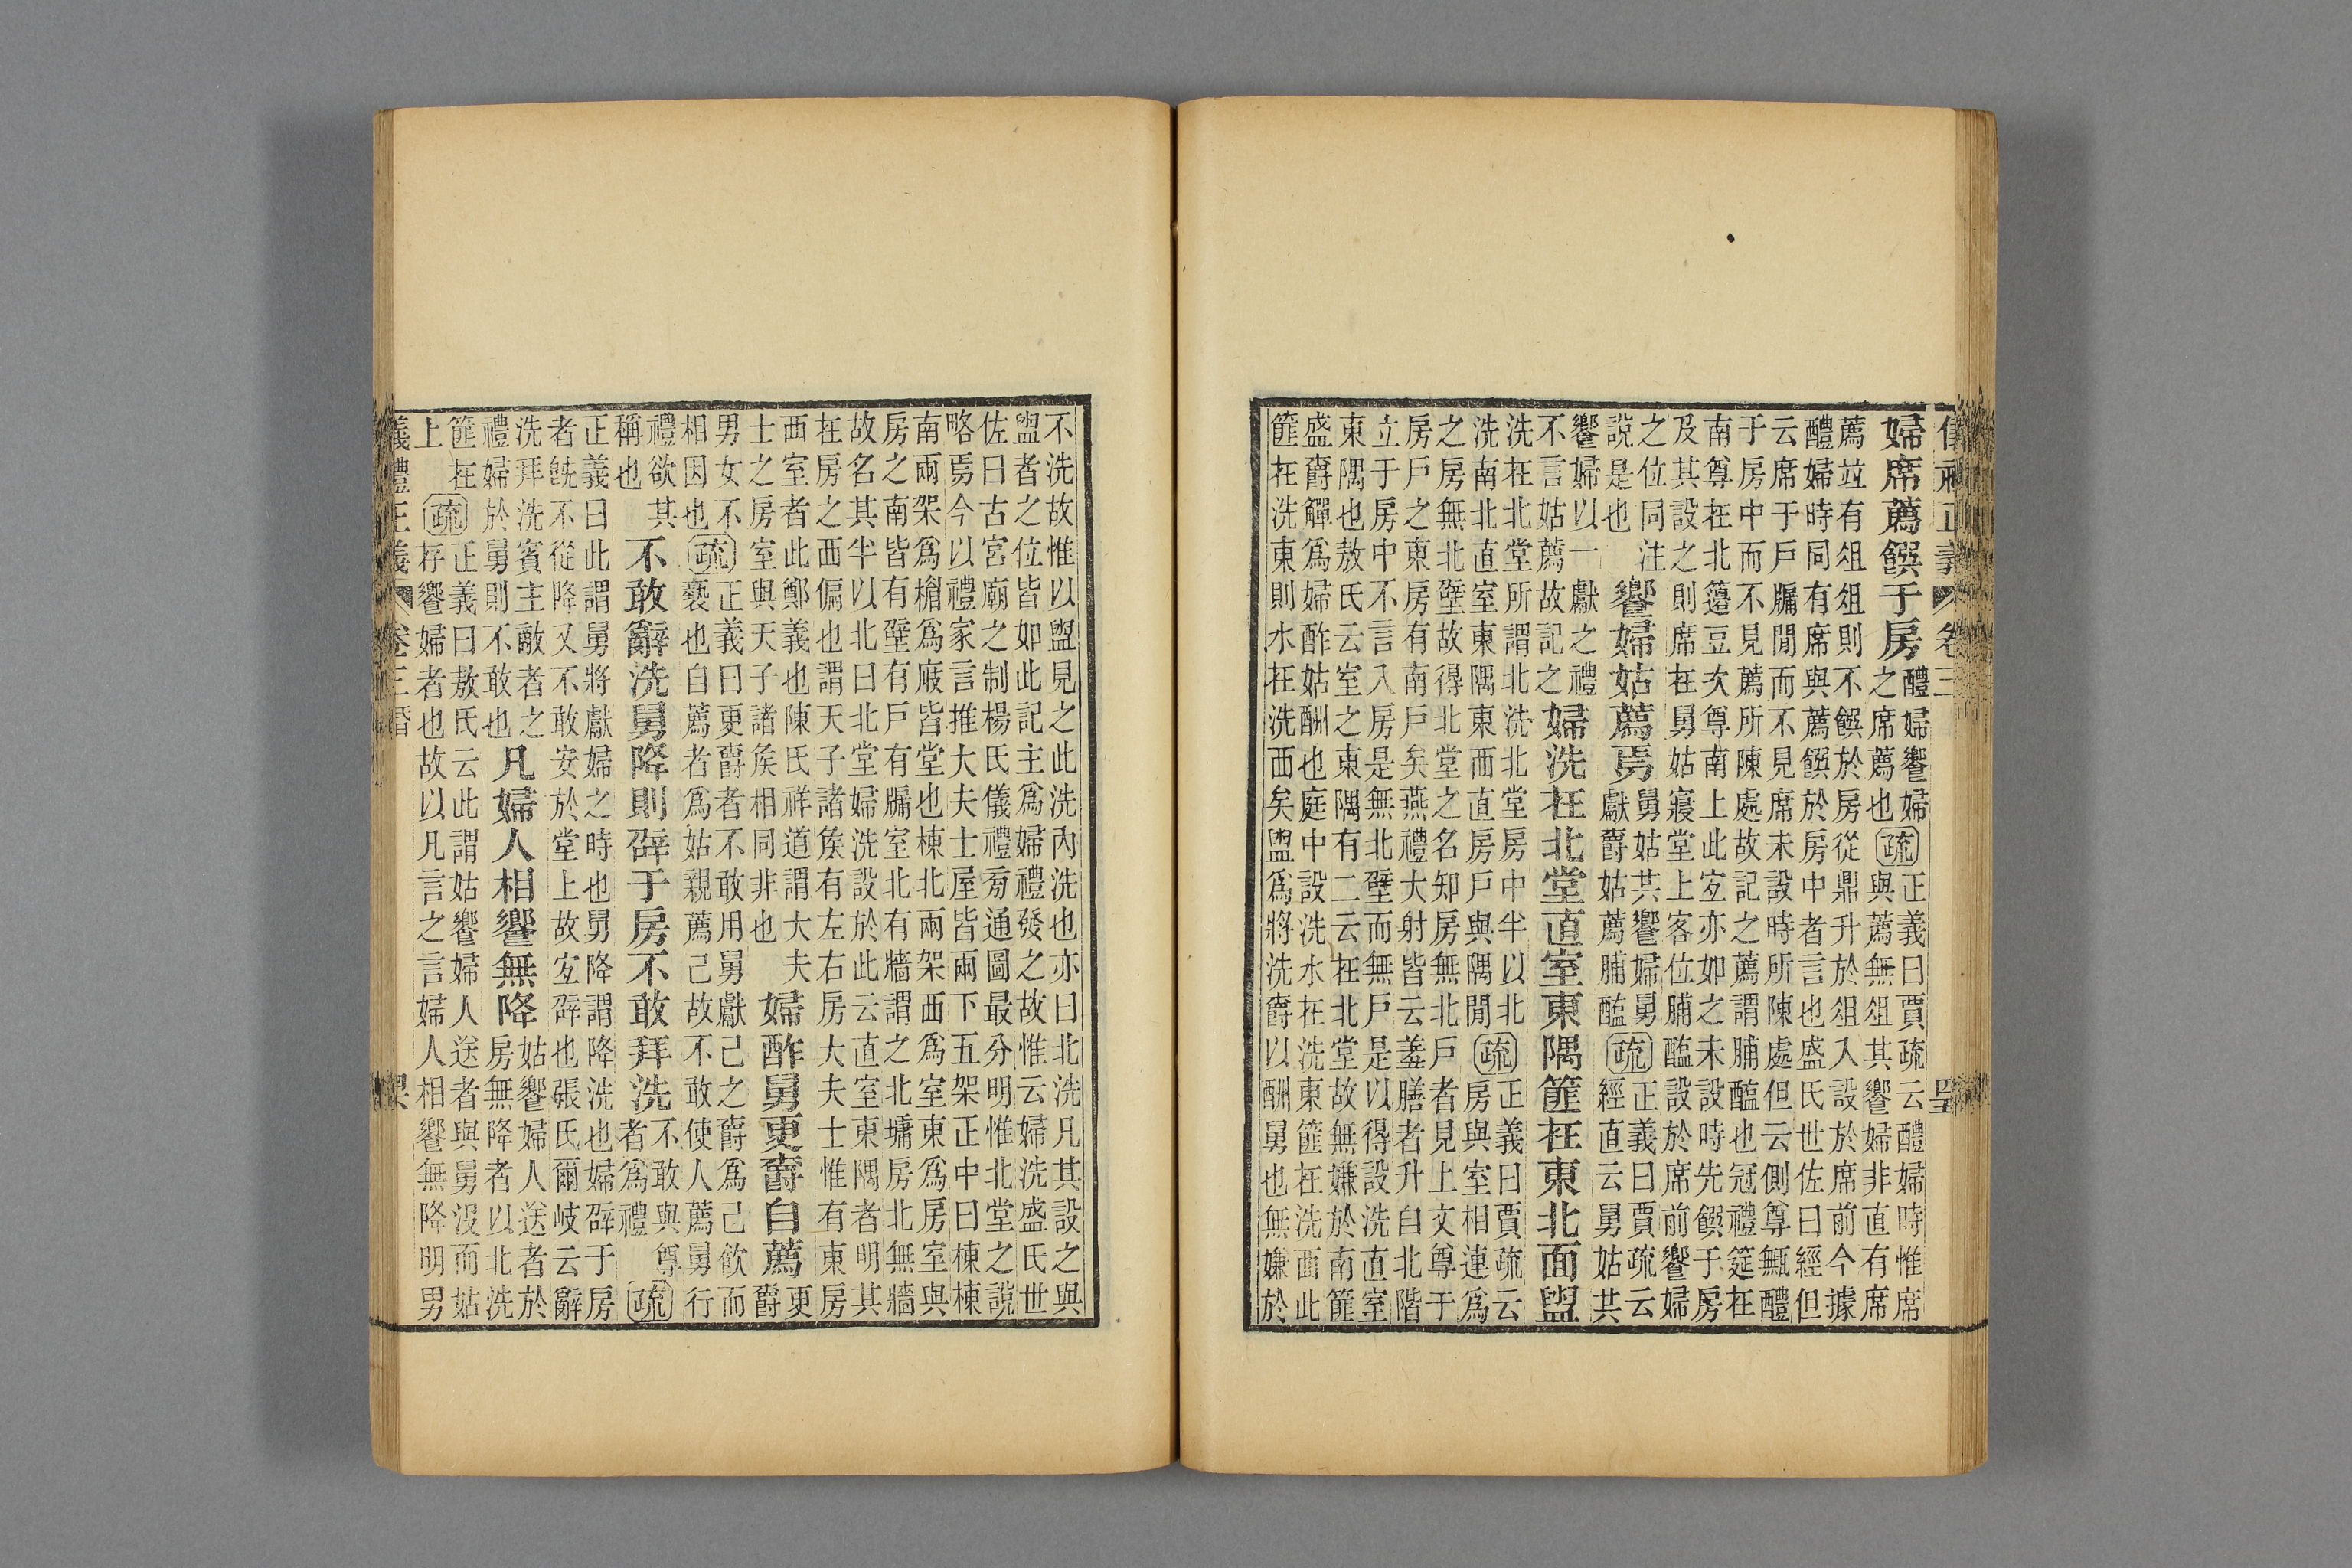 儀禮正義 卷三
婦席薦饌于房
醴婦饗婦
之席薦也
疏
正義曰賈疏云醴婦時惟席
與薦無俎其饗婦非直有席
薦竝有俎俎則不饌於房從鼎升於俎入設於席前今據
醴婦時同有席與薦饌於房中者言也盛氏世佐曰經但
云席于戶牖閒而不見席未設時所陳處但云側尊甒醴
于房中而不見薦所陳處故記之薦謂脯醢也冠禮筵在
南尊在北籩豆次尊南上此宐亦如之未設時先饌于房
及其設之則席在舅姑寢堂上客位脯醢設於席前饗婦
之位同注
說是也
饗婦姑薦焉
舅姑共饗婦舅
獻爵姑薦脯醢
疏
正義曰賈疏云
經直云舅姑共
饗婦以一獻之禮
不言姑薦故記之
婦洗在北堂直室東隅篚在東北面盥
洗在北堂所謂北洗北堂房中半以北
洗南北直室東隅東西直房戶與隅閒
疏
正義曰賈疏云
房與室相連爲
之房無北壁故得北堂之名知房無北戶者見上文尊于
房戶之東房有南戶矣燕禮大射皆云羞膳者升自北階
立于房中不言入房是無北壁而無戶是以得設洗直室
東隅也敖氏云室之東隅有二云在北堂故無嫌於南篚
盛爵觶爲婦酢姑酬也庭中設洗水在洗東篚在洗西此
篚在洗東則水在洗西矣盥爲將洗爵以酬舅也無嫌於
不洗故惟以盥見之此洗內洗也亦曰北洗凡其設之與
盥者之位皆如此記主爲婦禮發之故惟云婦洗盛氏世
佐曰古宮廟之制楊氏儀禮旁通圖最分明惟北堂之說
略焉今以禮家言推大夫士屋皆兩下五架正中曰棟棟
南兩架爲檐爲廄皆堂也棟北兩架西爲室東爲房室與
房之南皆有壁有戶有牖室北有牆謂之北墉房北無牆
故名其半以北曰北堂婦洗設於此云直室東隅者明其
在房之西偏也謂天子諸矦有左右房大夫士惟有東房
西室者此鄭義也陳氏祥道謂大夫
士之房室與天子諸矦相同非也
婦酢舅更爵自薦
更
爵
男女不
相因也
疏
正義曰更爵者不敢用舅獻己之爵爲己飮而
褻也自薦者爲姑親薦己故不敢使人薦舅行
禮欲其
稱也
不敢辭洗舅降則辟于房不敢拜洗
不敢與尊
者爲禮
疏
正義曰此謂舅將獻婦之時也舅降謂降洗也婦辟于房
者旣不從降又不敢安於堂上故宐辟也張氏爾岐云辭
洗拜洗賓主敵者之
禮婦於舅則不敢也
凡婦人相饗無降
姑饗婦人送者於
房無降者以北洗
篚在
上
疏
正義曰敖氏云此謂姑饗婦人送者與舅沒而姑
存饗婦者也故以凡言之言婦人相饗無降明男
義禮正義 卷三 昏